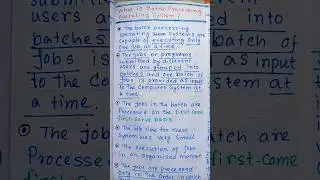 What is Batch Processing
Operating System?
The batch processing
operating Systems are
capable of executing Only
One job at a time.
The jobs or programs
submitted by different
users are grouped into
batches and one batch of
jobs is provided as input
to the Computer System at
a time.
The jobs in the batch are
Processed on the first-come
first-Serve basis
The idle time for these
System was very Small
The execution of Job
in an organised manner
The jobs are processed
Only in the order in which
users
into
batches
batch of
jobs is
as input
to the Com
System at
a time.
The jo
atch are
Processe
first-come
first-